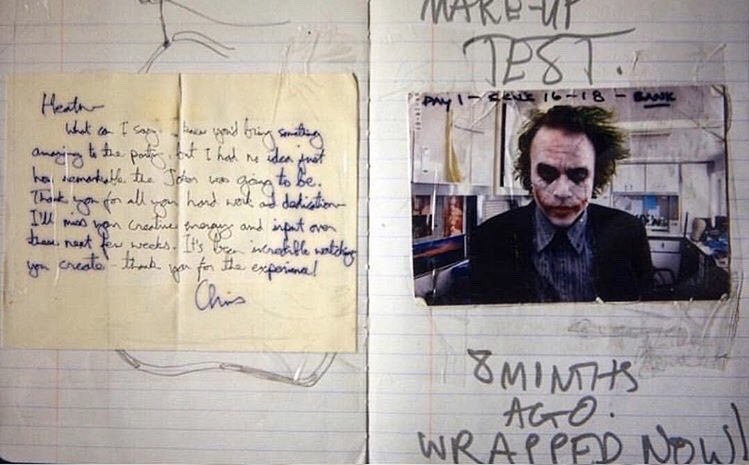 Heath
What can I say. I knew you'd bring something
amazing to the party, but I had no idea just
how remarkable the Joker was going to be.
Thank you for all your hard work and dedication
I'll miss your creative energy and input over
these next few weeks. It's been incredible watching
you create - thank you for the experience!
Chris
MAKE-UP
TEST.
DAY 1 - 16-18 - BANK
8 MINTHS
AGO.
WRAPPED NOW!